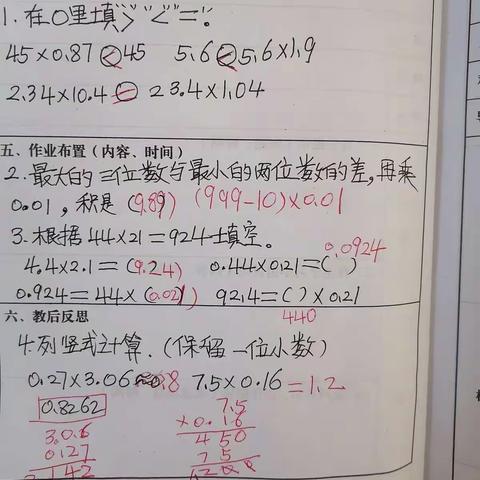 1.在○里填">""<""="。
45×0.87<45 5.6<5.6×1.9
2.34×10.4=23.4×1.04
五、作业布置(内容、时间)
2.最大的三位数与最小的两位数的差,再乘
0.01,积是(9.89) (999-10)×0.01
3.根据44×21=924填空。
0.0924
4.4×2.1=(9.24) 0.44×0.21=( )
0.924=44×(0.021) 92.4=( )×0.21
六、教后反思 440
4.列竖式计算.(保留一位小数)
0.27×3.06≈0.8 7.5×0.16=1.2
0.8262 7.5
3.0.6 ×0.16
0.27 450
2142 75